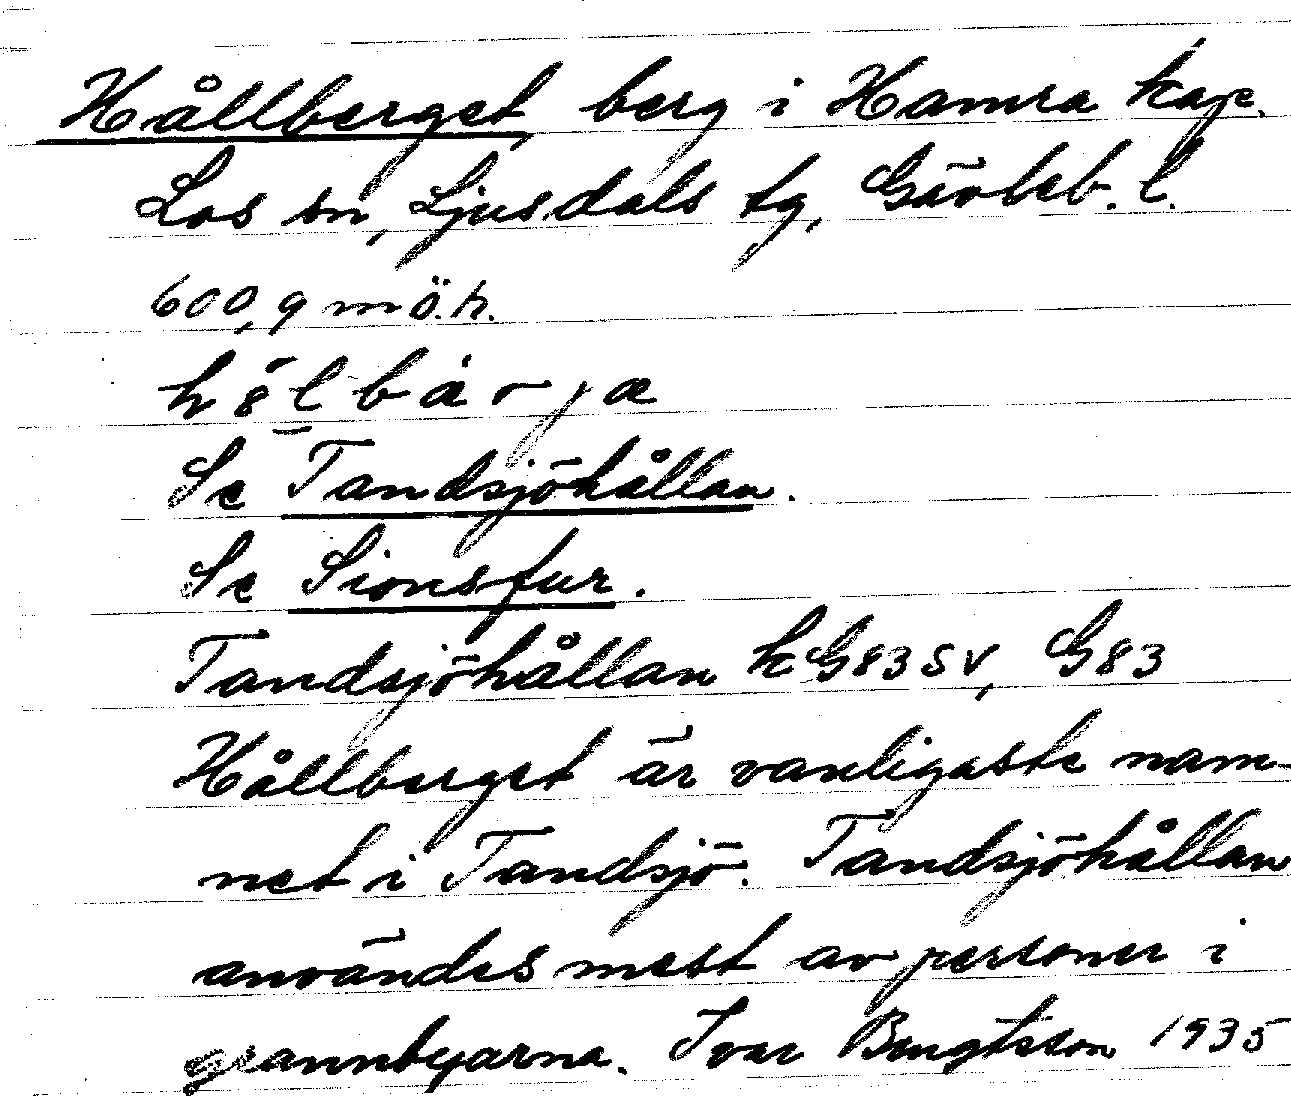 Hållberget, berg i Hamra kap.
Los sn, Ljusdals tg, Gävleb. l.
600,9 m ö.h.
Se Tandsjöhållan.
Se Sionsfur.
Tandsjöhållan kG83SV, G83
Hållberget är vanligaste nam-
net i Tandsjö. Tandsjöhållan
användes mest av personer i
grannbyarna. Ivar Bengtsson 1935